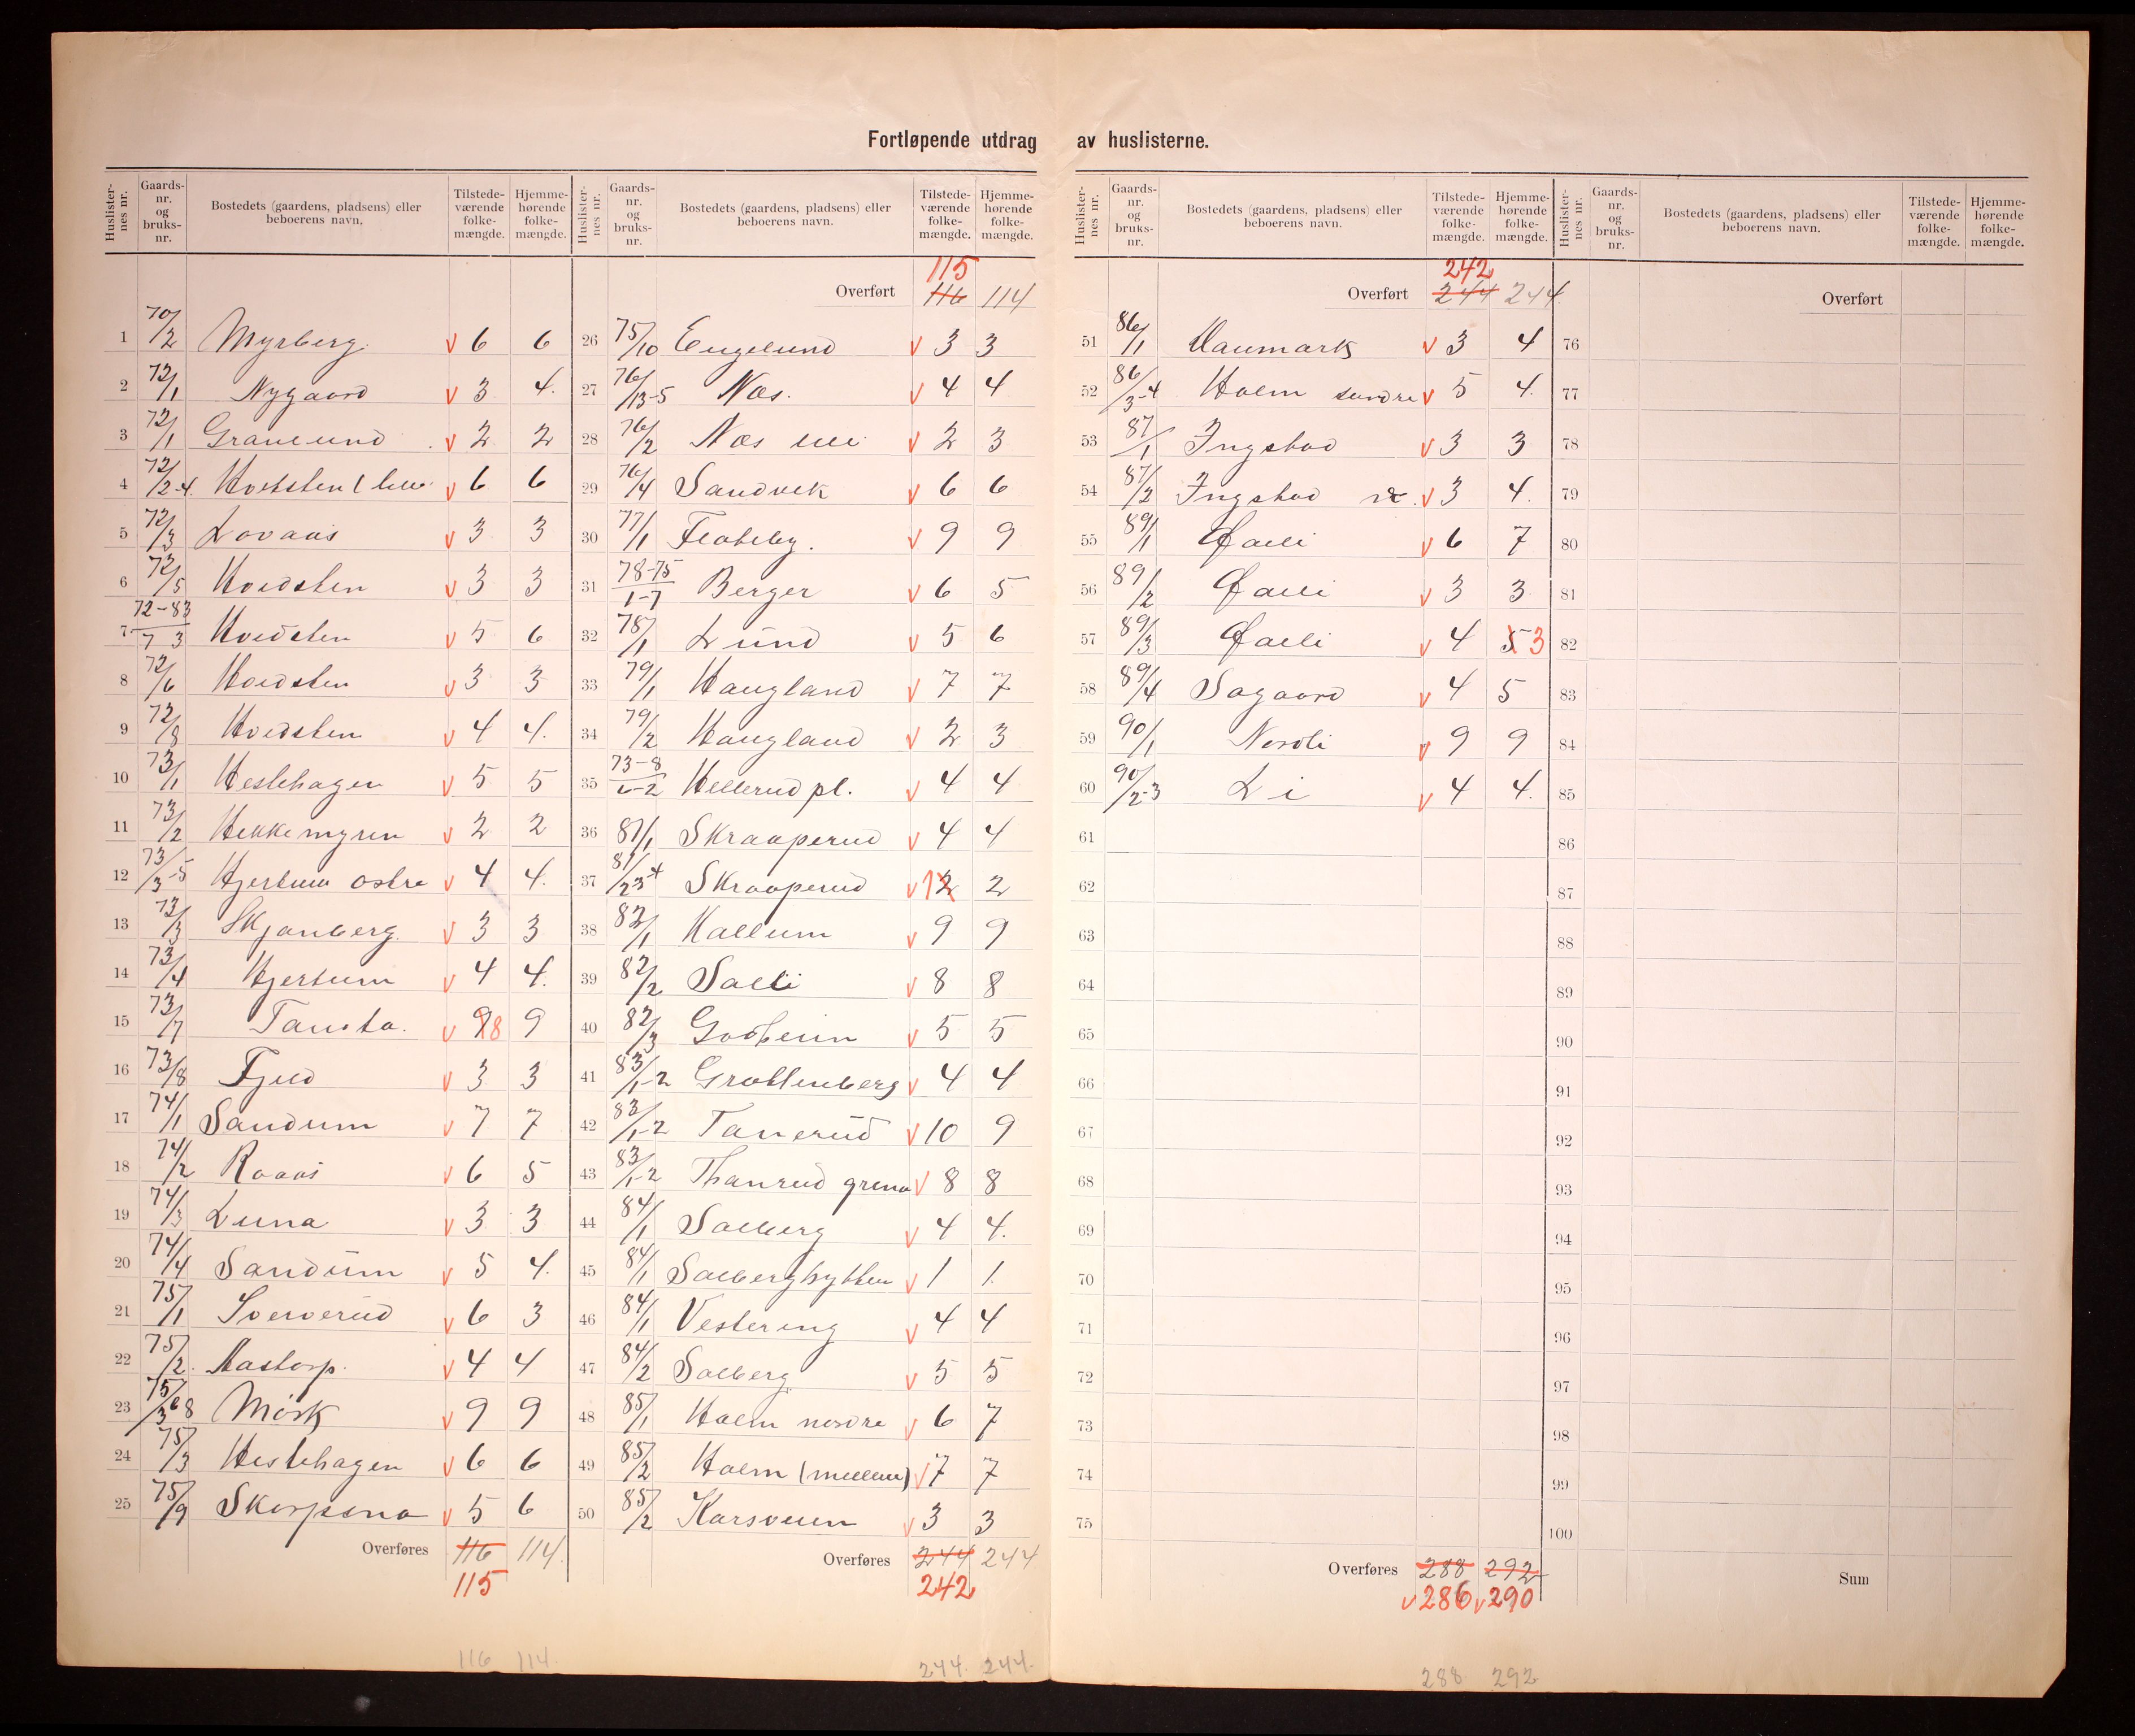 Fortløpende utdrag av huslisterne.
Huslisternes nr. Gaards-nr. og bruks-nr. Bostedets (gaardens, pladsens) eller beboerens navn. Tilstede-værende folke-mængde. Hjemme-hørende folke-mængde.
1 70/2 Myrberg. v 6 6
2 72/1 Nygaard v 3 4.
3 72/1 Granlund v 2 2
4 72/2-4. v 6 6
5 72/3 Lovaas v 3 3
6 72/5 Hvidsten v 3 3
7 72-83/7 3 Hvidsten v 5 6
8 72/6 Hvidsten v 3 3
9 72/8 Hvidsten v 4 4.
10 73/1 Hestehagen v 5 5
11 73/2 Hekkemyren v 2 2
12 73/3-5 Hjertum östre v 4 4.
13 73/3 Skjanberg. v 3 3
14 73/4 Hjertum v 4 4.
15 73/7 v 9 8 9
16 73/8 Fjeld v 3 3
17 74/1 Sandum v 7 7
18 74/2 Raaas v 6 5
19 74/3 Luna v 3 3
20 74/4 Sandum v 5 4.
21 75/1 Sververud v 6 3
22 75/2. Aastorp. v 4 4
23 75/3 6 8 Mörk v 9 9
24 75/3 Hestehagen v 6 6
25 75/9 Skorpena v 5 6
Overføres 116 114.
115
116 114.
Huslisternes nr. Gaards-nr. og bruks-nr. Bostedets (gaardens, pladsens) eller beboerens navn. Tilstede-værende folke-mængde. Hjemme-hørende folke-mængde.
115
Overført 116 114
26 75/10 Engelund v 3 3
27 76/13-5 Næs. v 4 4
28 76/2 Næs v 2 3
29 76/4 Sandvik v 6 6
30 77/1 Flateby. v 9 9
31 78-75/1-7 Berger v 6 5
32 78/1 Lund v 5 6
33 79/1 Haugland v 7 7
34 79/2 Haugland v 2 3
35 73-8/1-2 Hellerud pl. v 4 4
36 81/1 Skraaperud v 4 4
37 81/23 4 Skraaperud v 1 2 2
38 82/1 Hallum v 9 9
39 82/2 Solli v 8 8
40 82/3 Godheim v 5 5
41 83/1-2 Grottenberg v 4 4
42 83/1-2 Tanerud v 10 9
43 83/1-2 Thanrud v 8 8
44 84/1 Solberg v 4 4.
45 84/1 Solberghytten v 1 1.
46 84/1 Vestereng v 4 4
47 84/2 Solberg v 5 5
48 85/1 Holm nordre v 6 7
49 85/2 Holm (mellem) v 7 7
50 85/2 Karsveen v 3 3
Overføres 244 244
242
244. 244.
Huslisternes nr. Gaards-nr. og bruks-nr. Bostedets (gaardens, pladsens) eller beboerens navn. Tilstede-værende folke-mængde. Hjemme-hørende folke-mængde.
242
Overført 244 244
51 86/1 v 3 4
52 86/3-4 Holm söndre v 5 4.
53 87/1 Ingstad v 3 3
54 87/2 Ingstad v 3 4.
55 89/1 v 6 7
56 89/2 v 3 3
57 89/3 v 4 5 3
58 89/4 Sagaard v 4 5
59 90/1 Nordli v 9 9
60 90/2-3 Li v 4 4.
61
62
63
64
65
66
67
68
69
70
71
72
73
74
75
Overføres 288 292
v 286 v 290
288. 292
Huslisternes nr. Gaards-nr. og bruks-nr. Bostedets (gaardens, pladsens) eller beboerens navn. Tilstede-værende folke-mængde. Hjemme-hørende folke-mængde.
Overført
76
77
78
79
80
81
82
83
84
85
86
87
88
89
90
91
92
93
94
95
96
97
98
99
100
Sum